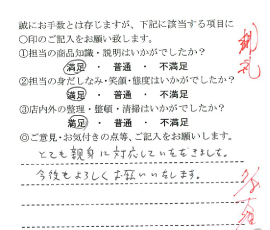 誠にお手数とは存じますが、下記に該当する項目に
〇印のご記入をお願い致します。
①担当の商品知識・説明はいかがでしたか？
満足 ・ 普通 ・ 不満足
②担当の身だしなみ・笑顔・態度はいかがでしたか？
満足 ・ 普通 ・ 不満足
③店内外の整理・整頓・清掃はいかがでしたか？
満足 ・ 普通 ・ 不満足
◎ご意見・お気付きの点等、ご記入をお願いします。
とても親身に対応していただきました。
今後もよろしくお願いいたします。